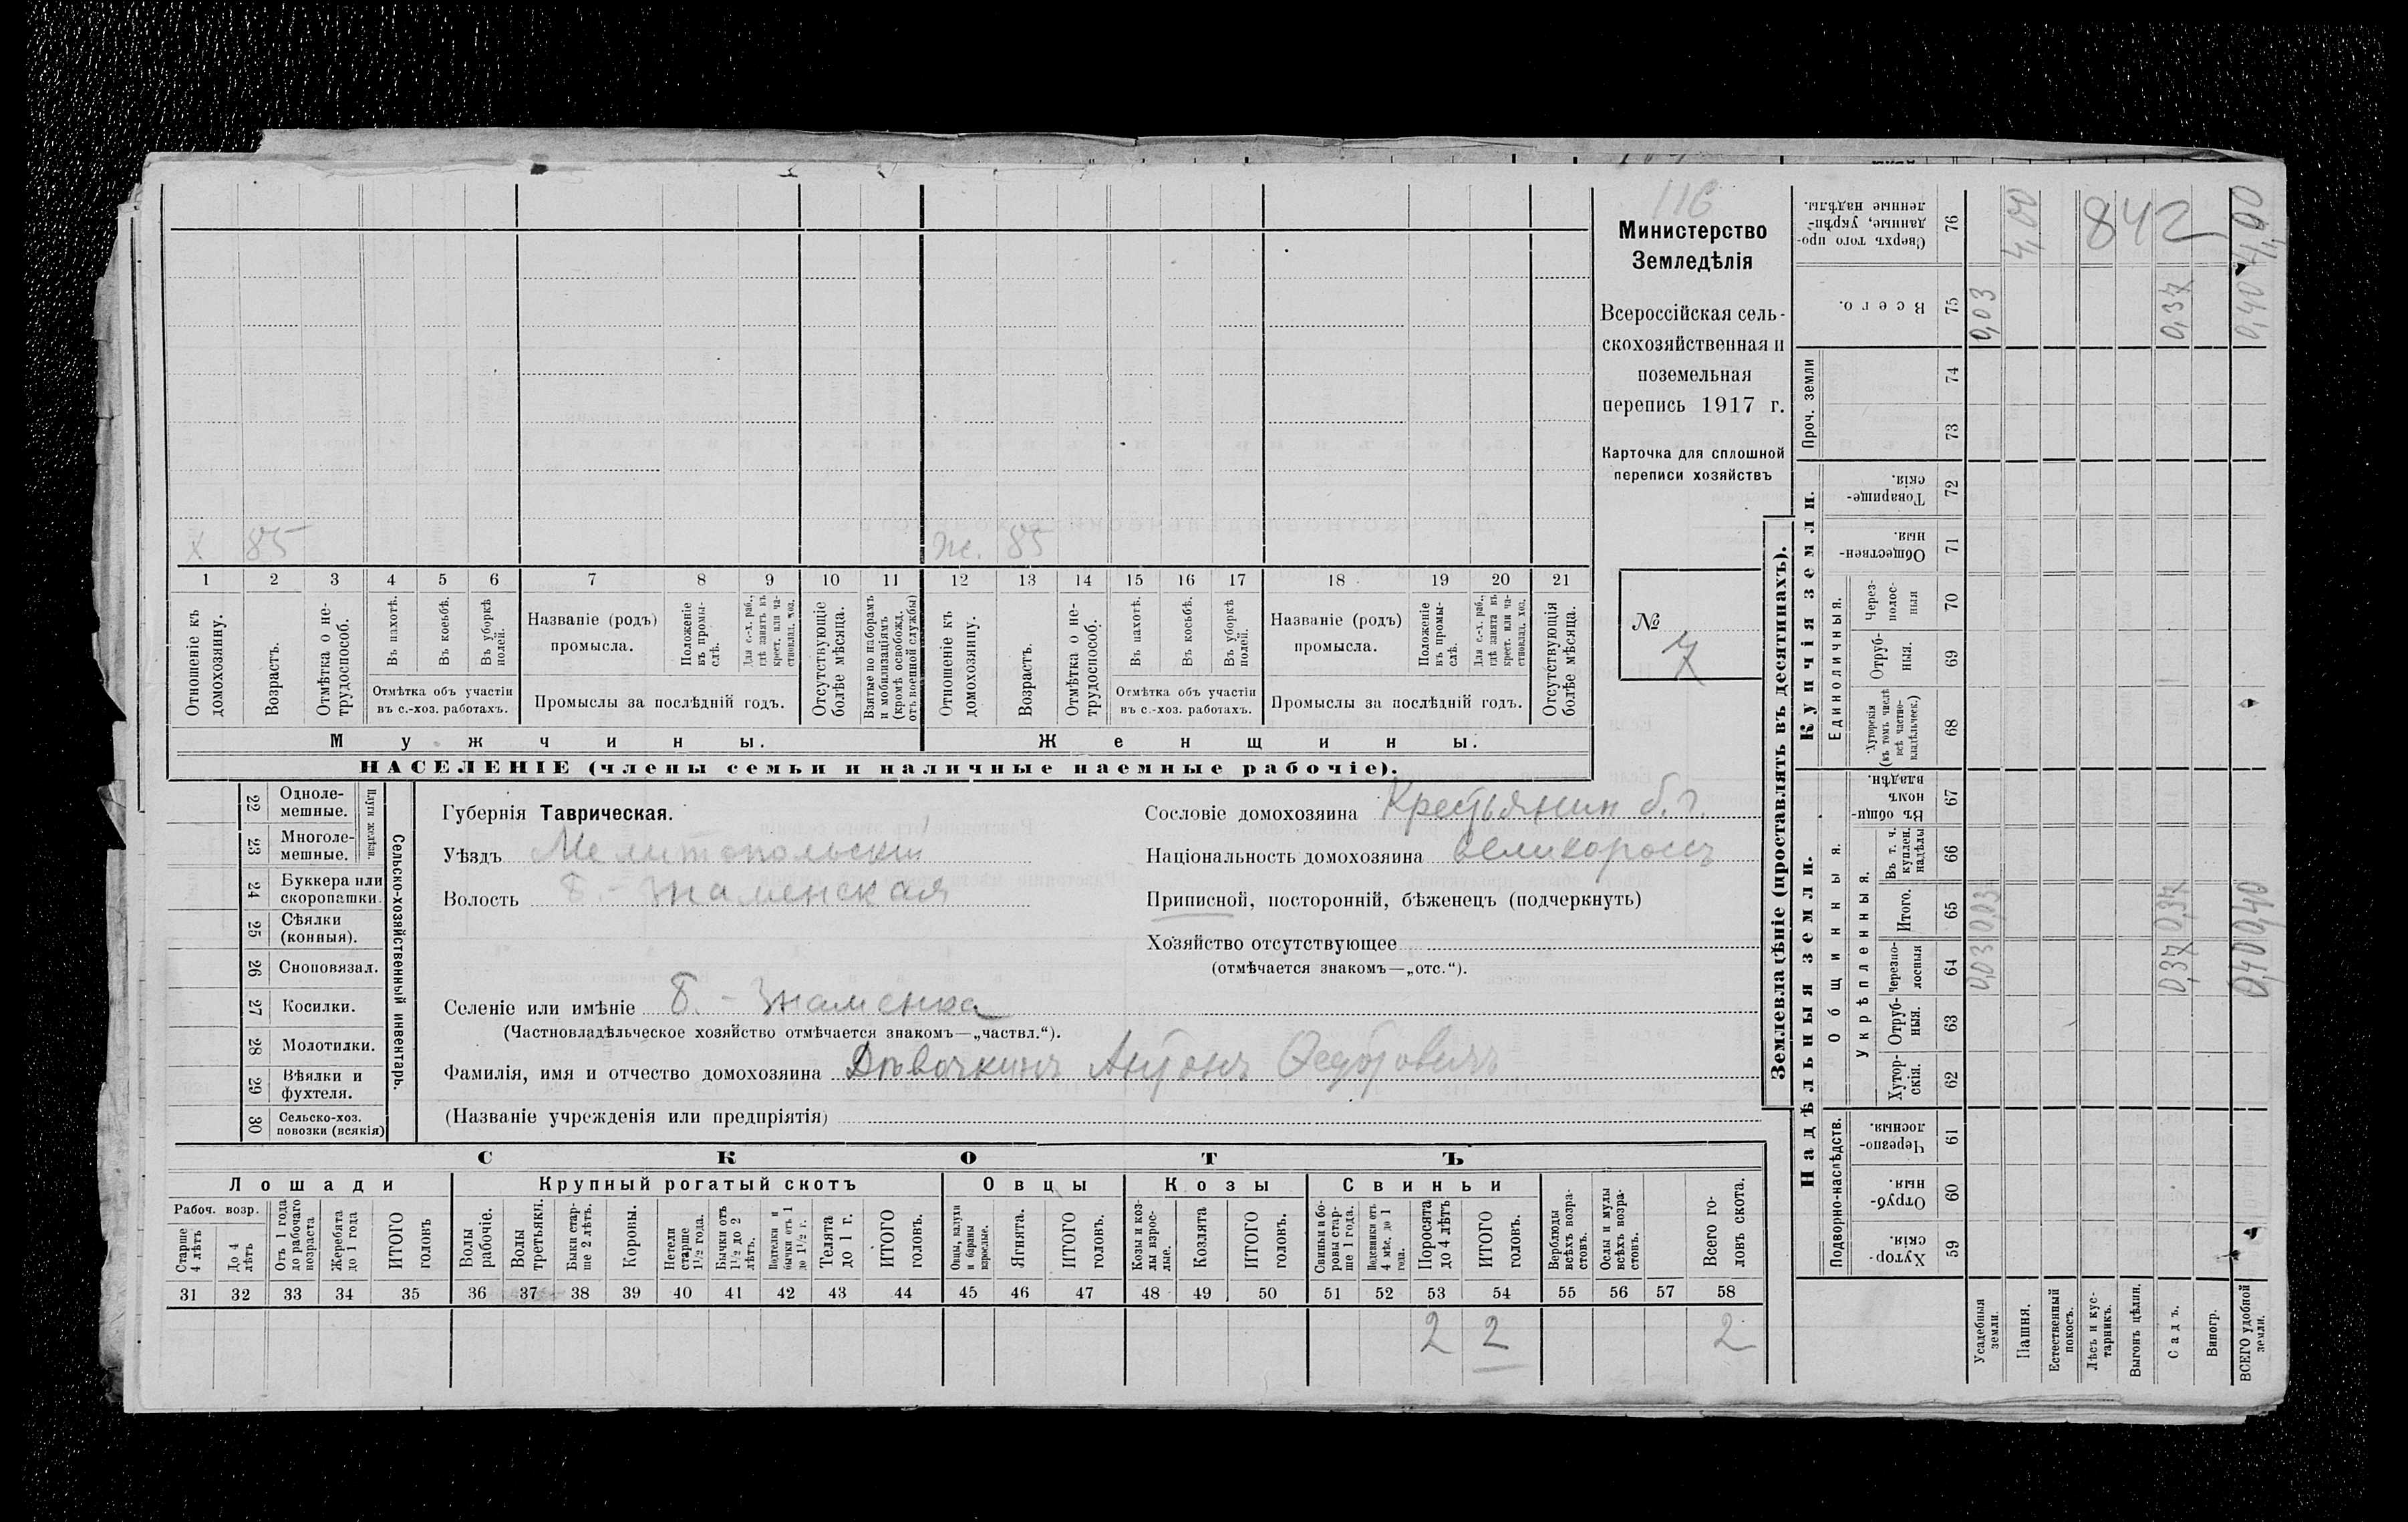 116
Министерство
Земледѣлія
Всероссійская сель-
скохозяйственная и
поземельная
перепись 1917 г.
Карточка для сплошной
переписи хозяйствъ
№
7
х 85 ж. 85
1 2 3 4 5 6 7 8 9 10 11 12 13 14 15 16 17 18 19 20 21
Отношеніе къ домохозяину.
Возрастъ.
Отмѣтка о не-трудоспособ.
Въ пахотѣ.
Въ косьбѣ.
Въ уборкѣ полей.
Отмѣтка объ участіи
въ с.-хоз. работахъ.
Названіе (родъ)
промысла.
Положеніе въ промы-слѣ.
Для с.-х. раб., гдѣ занятъ въ крест. или ча-стновлад. хоз.
Промыслы за послѣдній годъ.
Отсутствующіе болѣе мѣсяца.
Взятые по наборамъ и мобилизаціямъ (кромѣ освобожд. отъ военной службы)
Отношеніе къ домохозяину.
Возрастъ.
Отмѣтка о не-трудоспособ.
Въ пахотѣ.
Въ косьбѣ.
Въ уборкѣ полей.
Отмѣтка объ участіи
въ с.-хоз. работахъ.
Названіе (родъ)
промысла.
Положеніе въ промы-слѣ.
Для с.-х. раб., гдѣ занята въ крест. или ча-стновлад. хоз.
Промыслы за послѣдній годъ.
Отсутствующія болѣе мѣсяца.
Мужчины. Женщины.
НАСЕЛЕНІЕ (члены семьи и наличные наемные рабочіе).
22 Одноле-мешные.
23 Многоле-мешные.
Плуги желѣзн.
24 Буккера или скоропашки.
25 Сѣялки (конныя).
26 Сноповязал.
27 Косилки.
28 Молотилки.
29 Вѣялки и фухтеля.
30 Сельско-хоз. повозки (всякія)
Сельско-хозяйственный инвентарь.
Губернія Таврическая.
Уѣздъ Мелитопольскій
Волость Б.-Знаменская
Селеніе или имѣніе Б.-Знаменка
(Частновладѣльческое хозяйство отмѣчается знакомъ—„частвл.“).
Фамилія, имя и отчество домохозяина Дѣвочкинъ Антонъ Федотовичъ
(Названіе учрежденія или предпріятія)
Сословіе домохозяина Крестьянин б. г.
Національность домохозяина великороссъ
Приписной, посторонній, бѣженецъ (подчеркнуть)
Хозяйство отсутствующее
(отмѣчается знакомъ—„отс.“).
СКОТЪ
Лошади Крупный рогатый скотъ Овцы Козы Свиньи
Рабоч. возр.
Старше 4 лѣтъ
До 4 лѣтъ
Отъ 1 года до рабочаго возраста
Жеребята до 1 года
ИТОГО головъ
Волы рабочіе.
Волы третьяки.
Быки стар-ше 2 лѣтъ.
Коровы.
Нетели старше 1½ года.
Бычки отъ 1½ до 2 лѣтъ.
бычки отъ 1 до 1½ г.
Телята до 1 г.
ИТОГО головъ.
Овцы, валухи и бараны взрослые.
Ягнята.
ИТОГО головъ.
Козы и коз-лы взрос-лые.
Козлята
ИТОГО головъ.
Свиньи и бо-ровы стар-ше 1 года.
Подсвинки отъ 4 мѣс. до 1 года.
Поросята до 4 лѣтъ
ИТОГО головъ.
Верблюды всѣхъ возра-стовъ.
Ослы и мулы всѣхъ возра-стовъ.
Всего го-ловъ скота.
31 32 33 34 35 36 37 38 39 40 41 42 43 44 45 46 47 48 49 50 51 52 53 54 55 56 57 58
2 2 2
Землевладѣніе (проставлять въ десятинахъ).
Надѣльныя земли. Купчія земли.
Подворно-наслѣдств. Общинныя. Укрѣпленныя. Единоличныя. Проч. земли
59 Хутор-скія.
60 Отруб-ныя.
61 Черезпо-лосныя.
62 Хутор-скія.
63 Отруб-ныя.
64 Черезпо-лосныя
65 Итого.
66 Въ т. ч. куплен. надѣлы
67 Въ общин-номъ владѣн.
68 Хуторскія (въ томъ числѣ всѣ частно-владѣльческ.)
69 Отруб-ныя.
70 Через-полос-ныя
71 Обществен-ныя.
72 Товарище-скія.
73
74
75 Всего.
76 Сверхъ того про-данные, укрѣп-ленные надѣлы.
Усадебныя земли. 0,03 0,03 0,03
Пашня. 4,00
Естественный покосъ.
Лѣсъ и кус-тарникъ.
Выгонъ цѣлин.
Садъ. 0,37 0,37 0,37
Виногр.
ВСЕГО удобной земли. 0,40 0,40 0,40 4,00
842